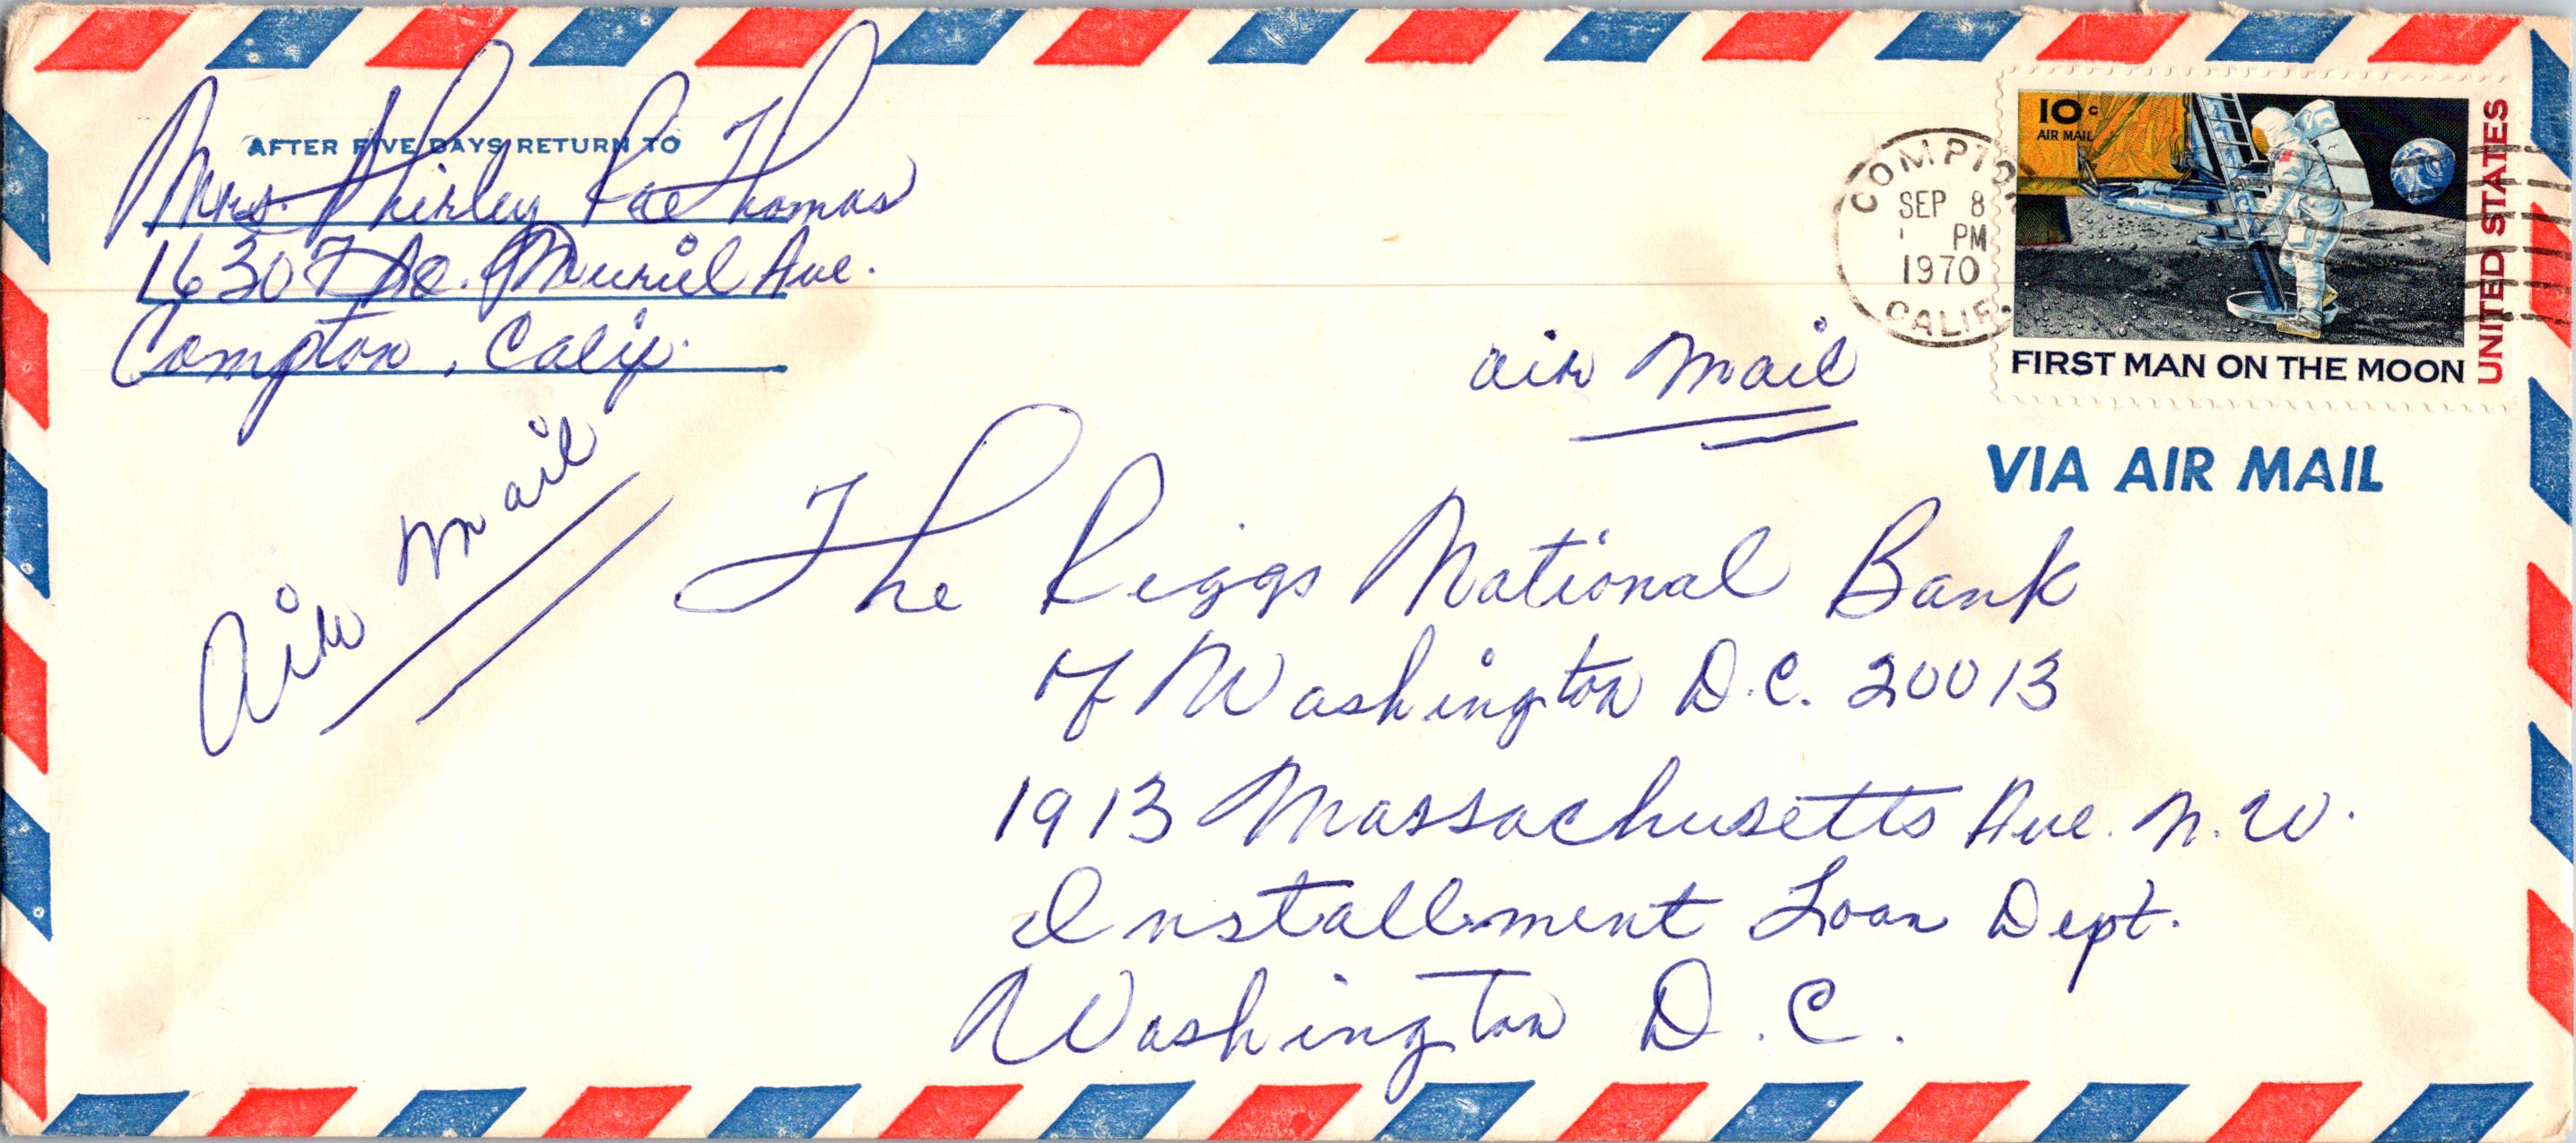 AFTER FIVE DAYS RETURN TO
Mrs. Shirley Rae Thomas
16307 So. Muriel Ave.
Compton, Calif.
COMPTON
SEP 8
PM
1970
CALIF.
10c
AIR MAIL
UNITED STATES
FIRST MAN ON THE MOON
Air Mail
VIA AIR MAIL
Air Mail
The Riggs National Bank
of Washington D.C. 20013
1913 Massachusetts Ave. N.W.
Installment Loan Dept.
Washington D.C.